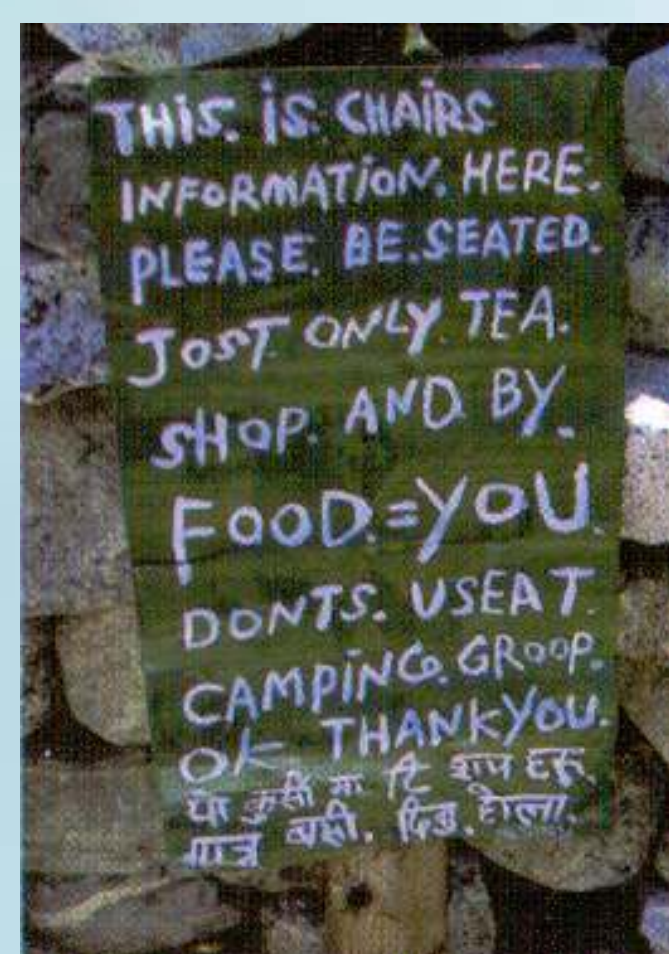 THIS. IS. CHAIRS
INFORMATION. HERE.
PLEASE. BE. SEATED.
JOST ONLY. TEA.
SHOP. AND. BY.
FOOD.=YOU.
DONTS. USEAT.
CAMPING. GROOP.
OK THANKYOU.
या कुर्सी मा टि शाप हरू
मात्र बसी. दिनु. होला.